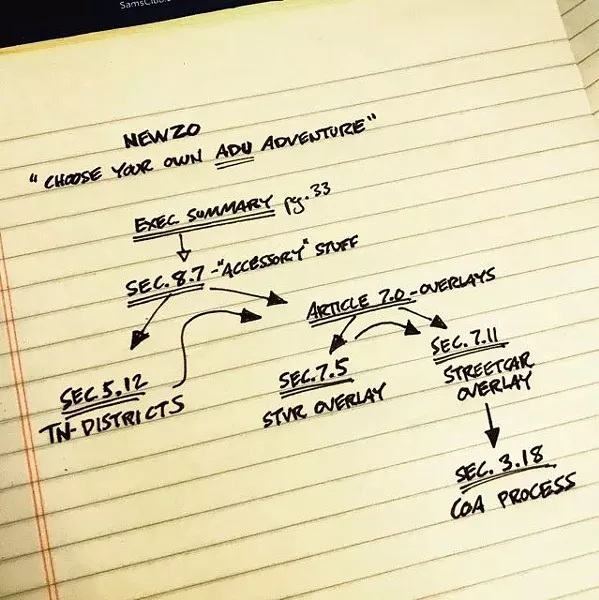 NEWZO
"CHOOSE YOUR OWN ADU ADVENTURE"
EXEC. SUMMARY pg. 33
SEC. 8.7 - "ACCESSORY" STUFF
ARTICLE 7.0 - OVERLAYS
SEC. 5.12
TN-DISTRICTS
SEC. 7.5
STVR OVERLAY
SEC. 7.11
STREETCAR
OVERLAY
SEC. 3.18
COA PROCESS